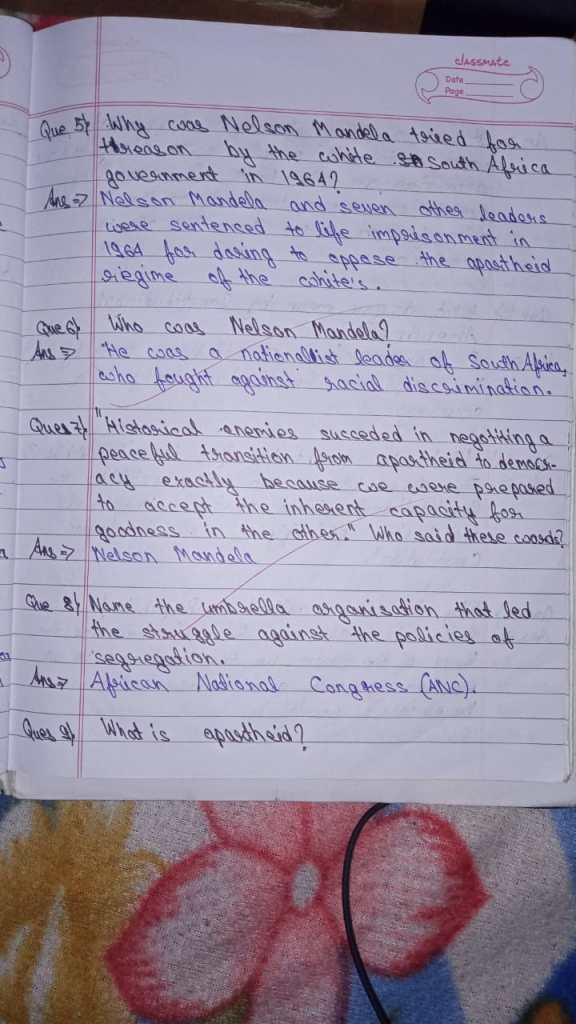 classmate
Date
Page
Que 5) Why was Nelson Mandela tried for
threason by the white South Africa
government in 1964?
Ans => Nelson Mandela and seven other leaders
were sentenced to life imprisonment in
1964 for daring to oppose the apartheid
riegime of the white's.
Que 6) Who was Nelson Mandela?
Ans => He was a nationallist leader of South Africa,
who fought against racial discrimination.
Ques 7) "Historical enemies succeded in negotiting a
peaceful transition from apartheid to democr-
acy exactly because we were prepared
to accept the inherent capacity for
goodness in the other." Who said these words?
Ans => Nelson Mandela
Que 8) Name the umbrella organisation that led
the struggle against the policies of
segregation.
Ans => African National Congress (ANC).
Ques 9) What is apartheid?